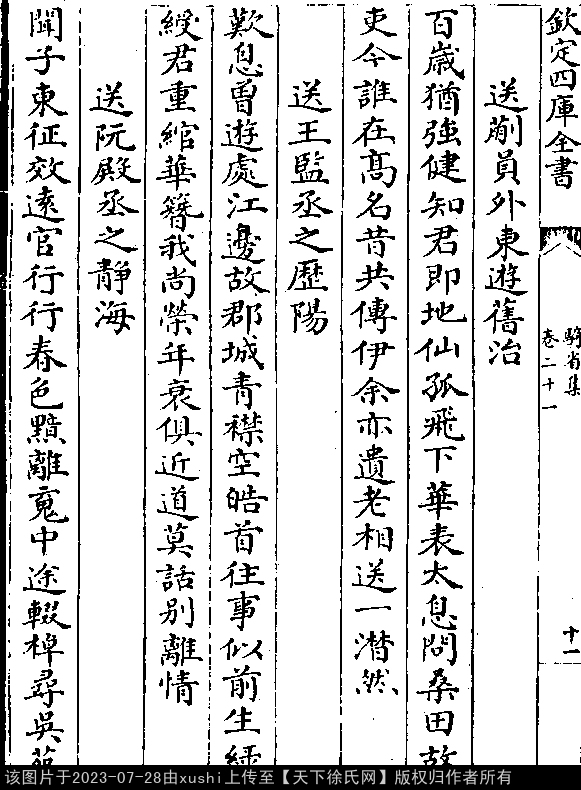 欽定四庫全書
騎省集
卷二十一
十一
送蒯員外東遊舊治
百歲猶強健知君即地仙孤飛下華表太息問桑田故
吏今誰在髙名昔共傳伊余亦遺老相送一潸然
送王監丞之歴陽
歎息曽遊處江邊故郡城青襟空皓首往事似前生
綬君重綰華簪我尚榮年衰俱近道莫話别離情
送阮殿丞之靜海
聞子東征效逺官行行春色黯離䰟中途輟棹尋吳
该图片于2023-07-28由xushi上传至【天下徐氏网】版权归作者所有